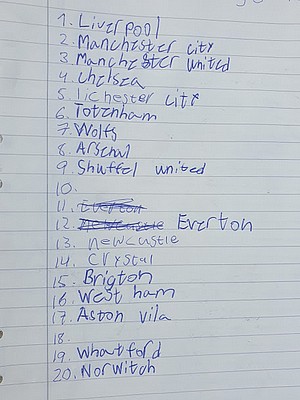 1. Liverpool
2. Manchister city
3. Manchester united
4. Chelsea
5. lichester city
6. Totenham
7. Wolfs
8. Arsenal
9. Shuffel united
10.
11. Everton
12. Newcastle Everton
13. newcastle
14. Crystal
15. Brigton
16. West ham
17. Aston vila
18.
19. Whartford
20. Norwitch